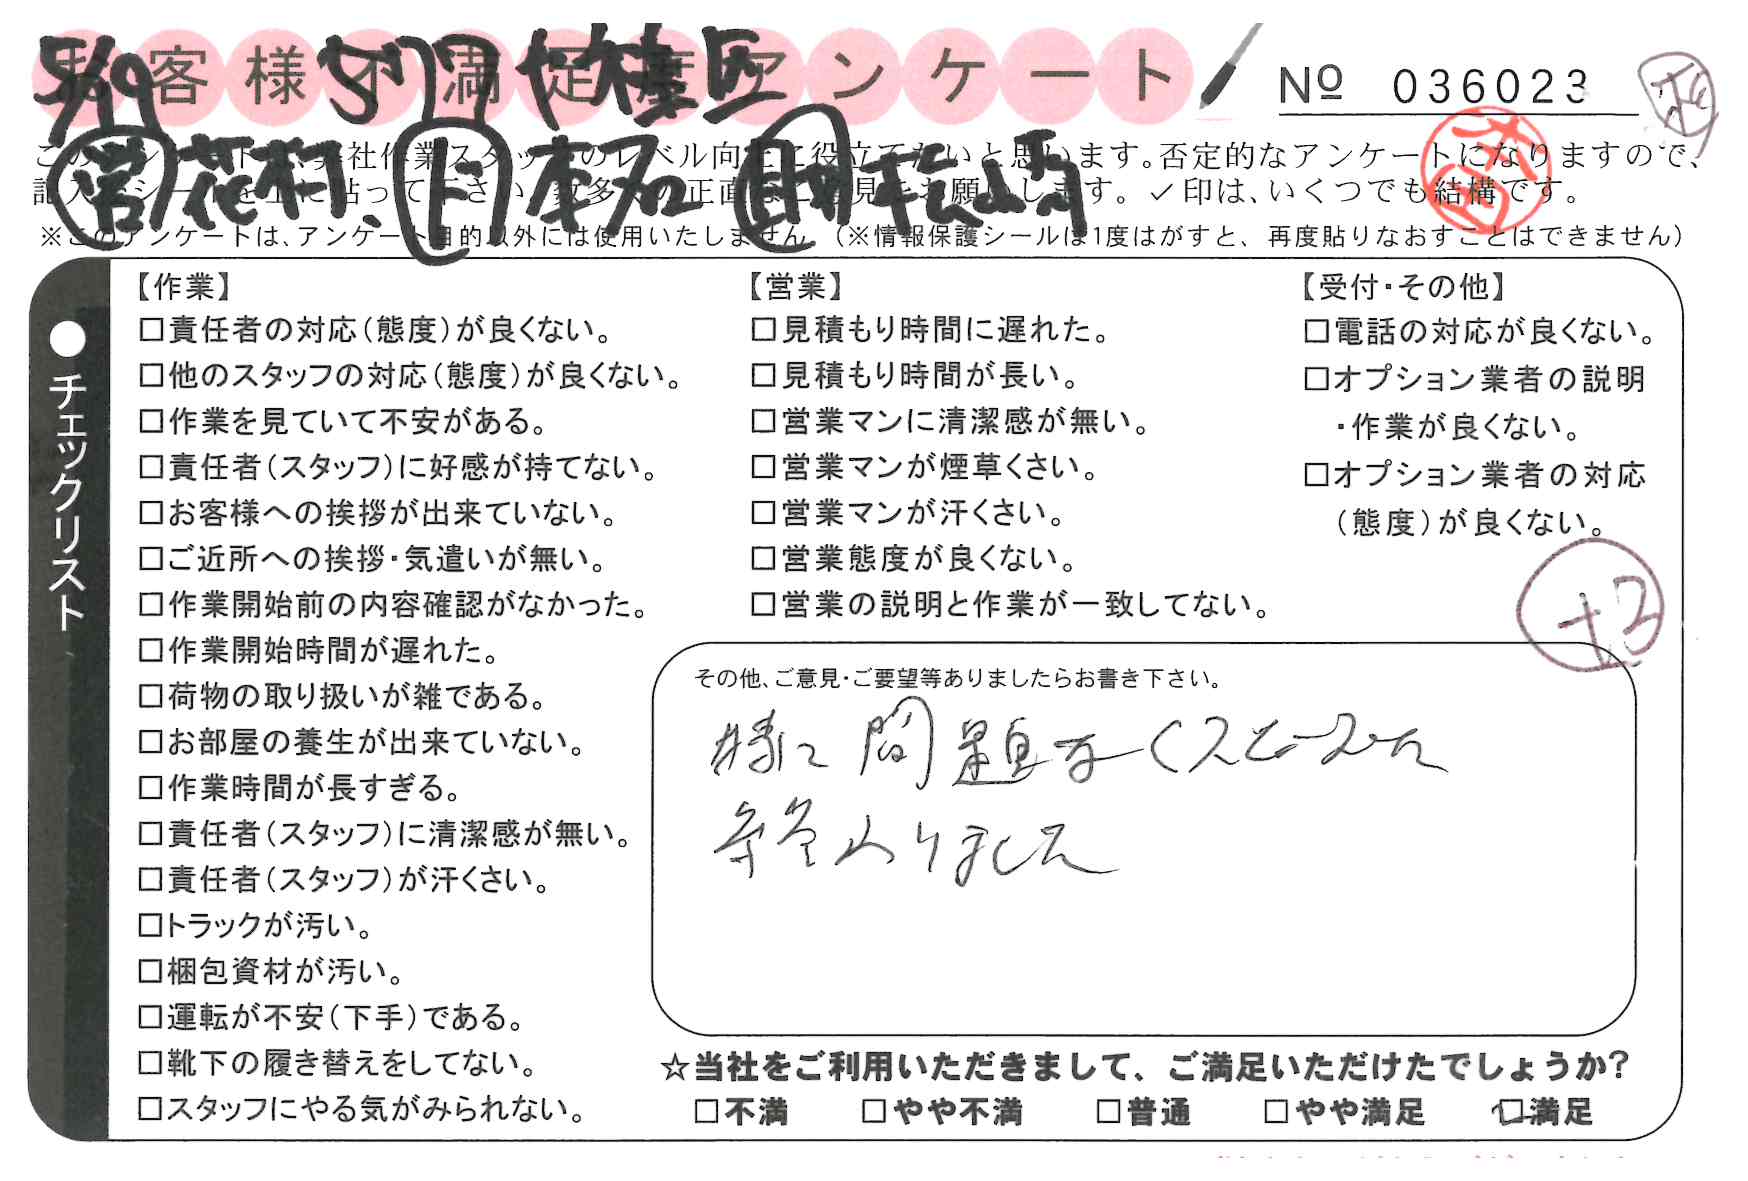 お客様不満足度アンケート
№ 036023
5/19
このアンケートは、弊社作業スタッフのレベル向上に役立てたいと思います。否定的なアンケートになりますので、
記入後シールを上に貼って下さい。数多くの正直なご意見をお願いします。✓印は、いくつでも結構です。
※このアンケートは、アンケート目的以外には使用いたしません。(※情報保護シールは1度はがすと、再度貼りなおすことはできません)
●チェックリスト
【作業】
□責任者の対応(態度)が良くない。
□他のスタッフの対応(態度)が良くない。
□作業を見ていて不安がある。
□責任者(スタッフ)に好感が持てない。
□お客様への挨拶が出来ていない。
□ご近所への挨拶・気遣いが無い。
□作業開始前の内容確認がなかった。
□作業開始時間が遅れた。
□荷物の取り扱いが雑である。
□お部屋の養生が出来ていない。
□作業時間が長すぎる。
□責任者(スタッフ)に清潔感が無い。
□責任者(スタッフ)が汗くさい。
□トラックが汚い。
□梱包資材が汚い。
□運転が不安(下手)である。
□靴下の履き替えをしてない。
□スタッフにやる気がみられない。
【営業】
□見積もり時間に遅れた。
□見積もり時間が長い。
□営業マンに清潔感が無い。
□営業マンが煙草くさい。
□営業マンが汗くさい。
□営業態度が良くない。
□営業の説明と作業が一致してない。
【受付・その他】
□電話の対応が良くない。
□オプション業者の説明
・作業が良くない。
□オプション業者の対応
(態度)が良くない。
+3
その他、ご意見・ご要望等ありましたらお書き下さい。
特に問題なくスムーズに
終わりました
☆当社をご利用いただきまして、ご満足いただけたでしょうか?
□不満 □やや不満 □普通 □やや満足 □満足